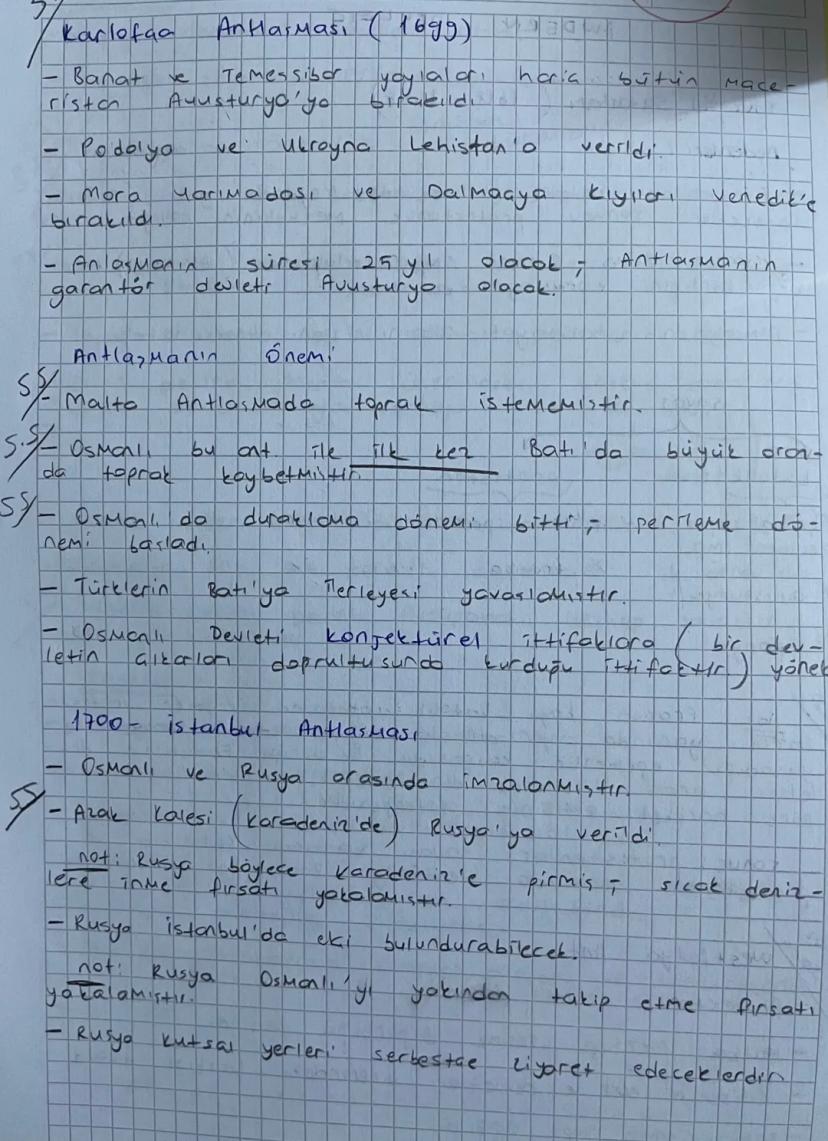 Karlofça Antlaşması (1699)
- Banat ve Temeşvar yaylaları hariç bütün Maca-
ristan Avusturya'ya bırakıldı.
- Podolya ve Ukrayna Lehistan'a verildi.
- Mora Yarımadası ve Dalmaçya kıyıları Venedik'e
bırakıldı.
- Anlaşmanın süresi 25 yıl olacak ; Antlaşmanın
garantör devleti Avusturya olacak.
Antlaşmanın Önemi
SS/- Malta Antlaşmada toprak istememiştir.
S.S/- Osmanlı bu ant ile ilk kez Batı'da büyük oran-
da toprak kaybetmiştir.
SS/- Osmanlı da duraklama dönemi bitti ; gerileme dö-
nemi başladı.
- Türklerin Batı'ya ilerleyesi yavaşlamıştır.
- Osmanlı Devleti konjektürel ittifaklara ( bir dev-
letin çıkarları doğrultusunda kurduğu ittifaktır ) yönel
1700- İstanbul Antlaşması
- Osmanlı ve Rusya arasında imzalanmıştır.
SS/- Azak Kalesi (Karadeniz'de) Rusya'ya verildi.
not: Rusya böylece Karadeniz'e girmiş ; sıcak deniz-
lere inme fırsatı yakalamıştır.
- Rusya İstanbul'da elçi bulundurabilecek.
not: Rusya Osmanlı'yı yakından takip etme fırsatı
yakalamıştır.
- Rusya kutsal yerleri serbestçe ziyaret edeceklerdir